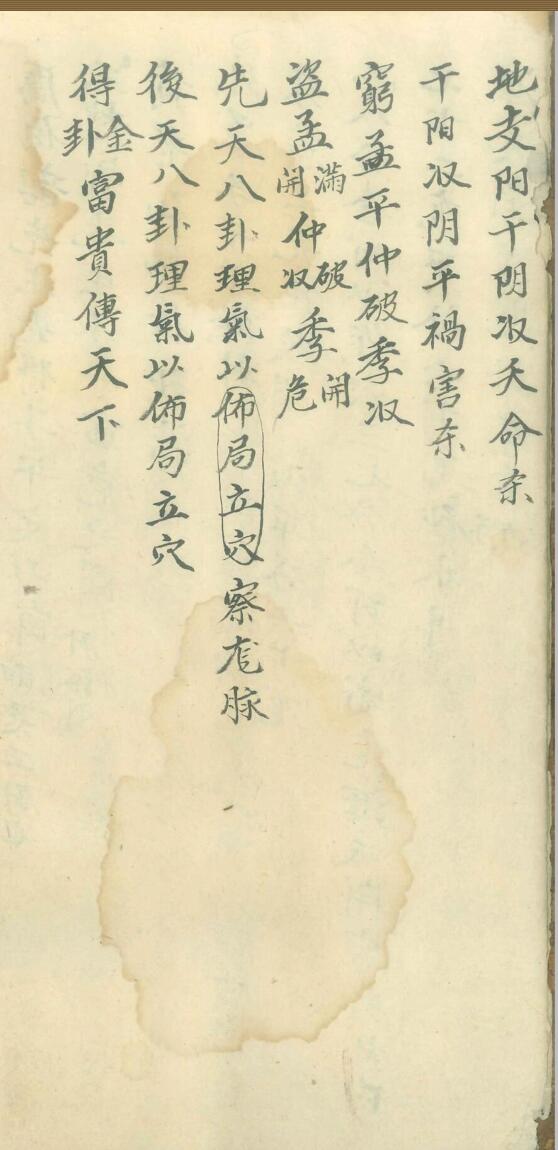 地支阳干阴収天命杀
干阳収阴平禍害杀
窮孟平仲破季収
盗孟滿開仲破収季開危
先天八卦理氣以佈局立穴察龙脉
後天八卦理氣以佈局立穴
得金卦富貴傳天下